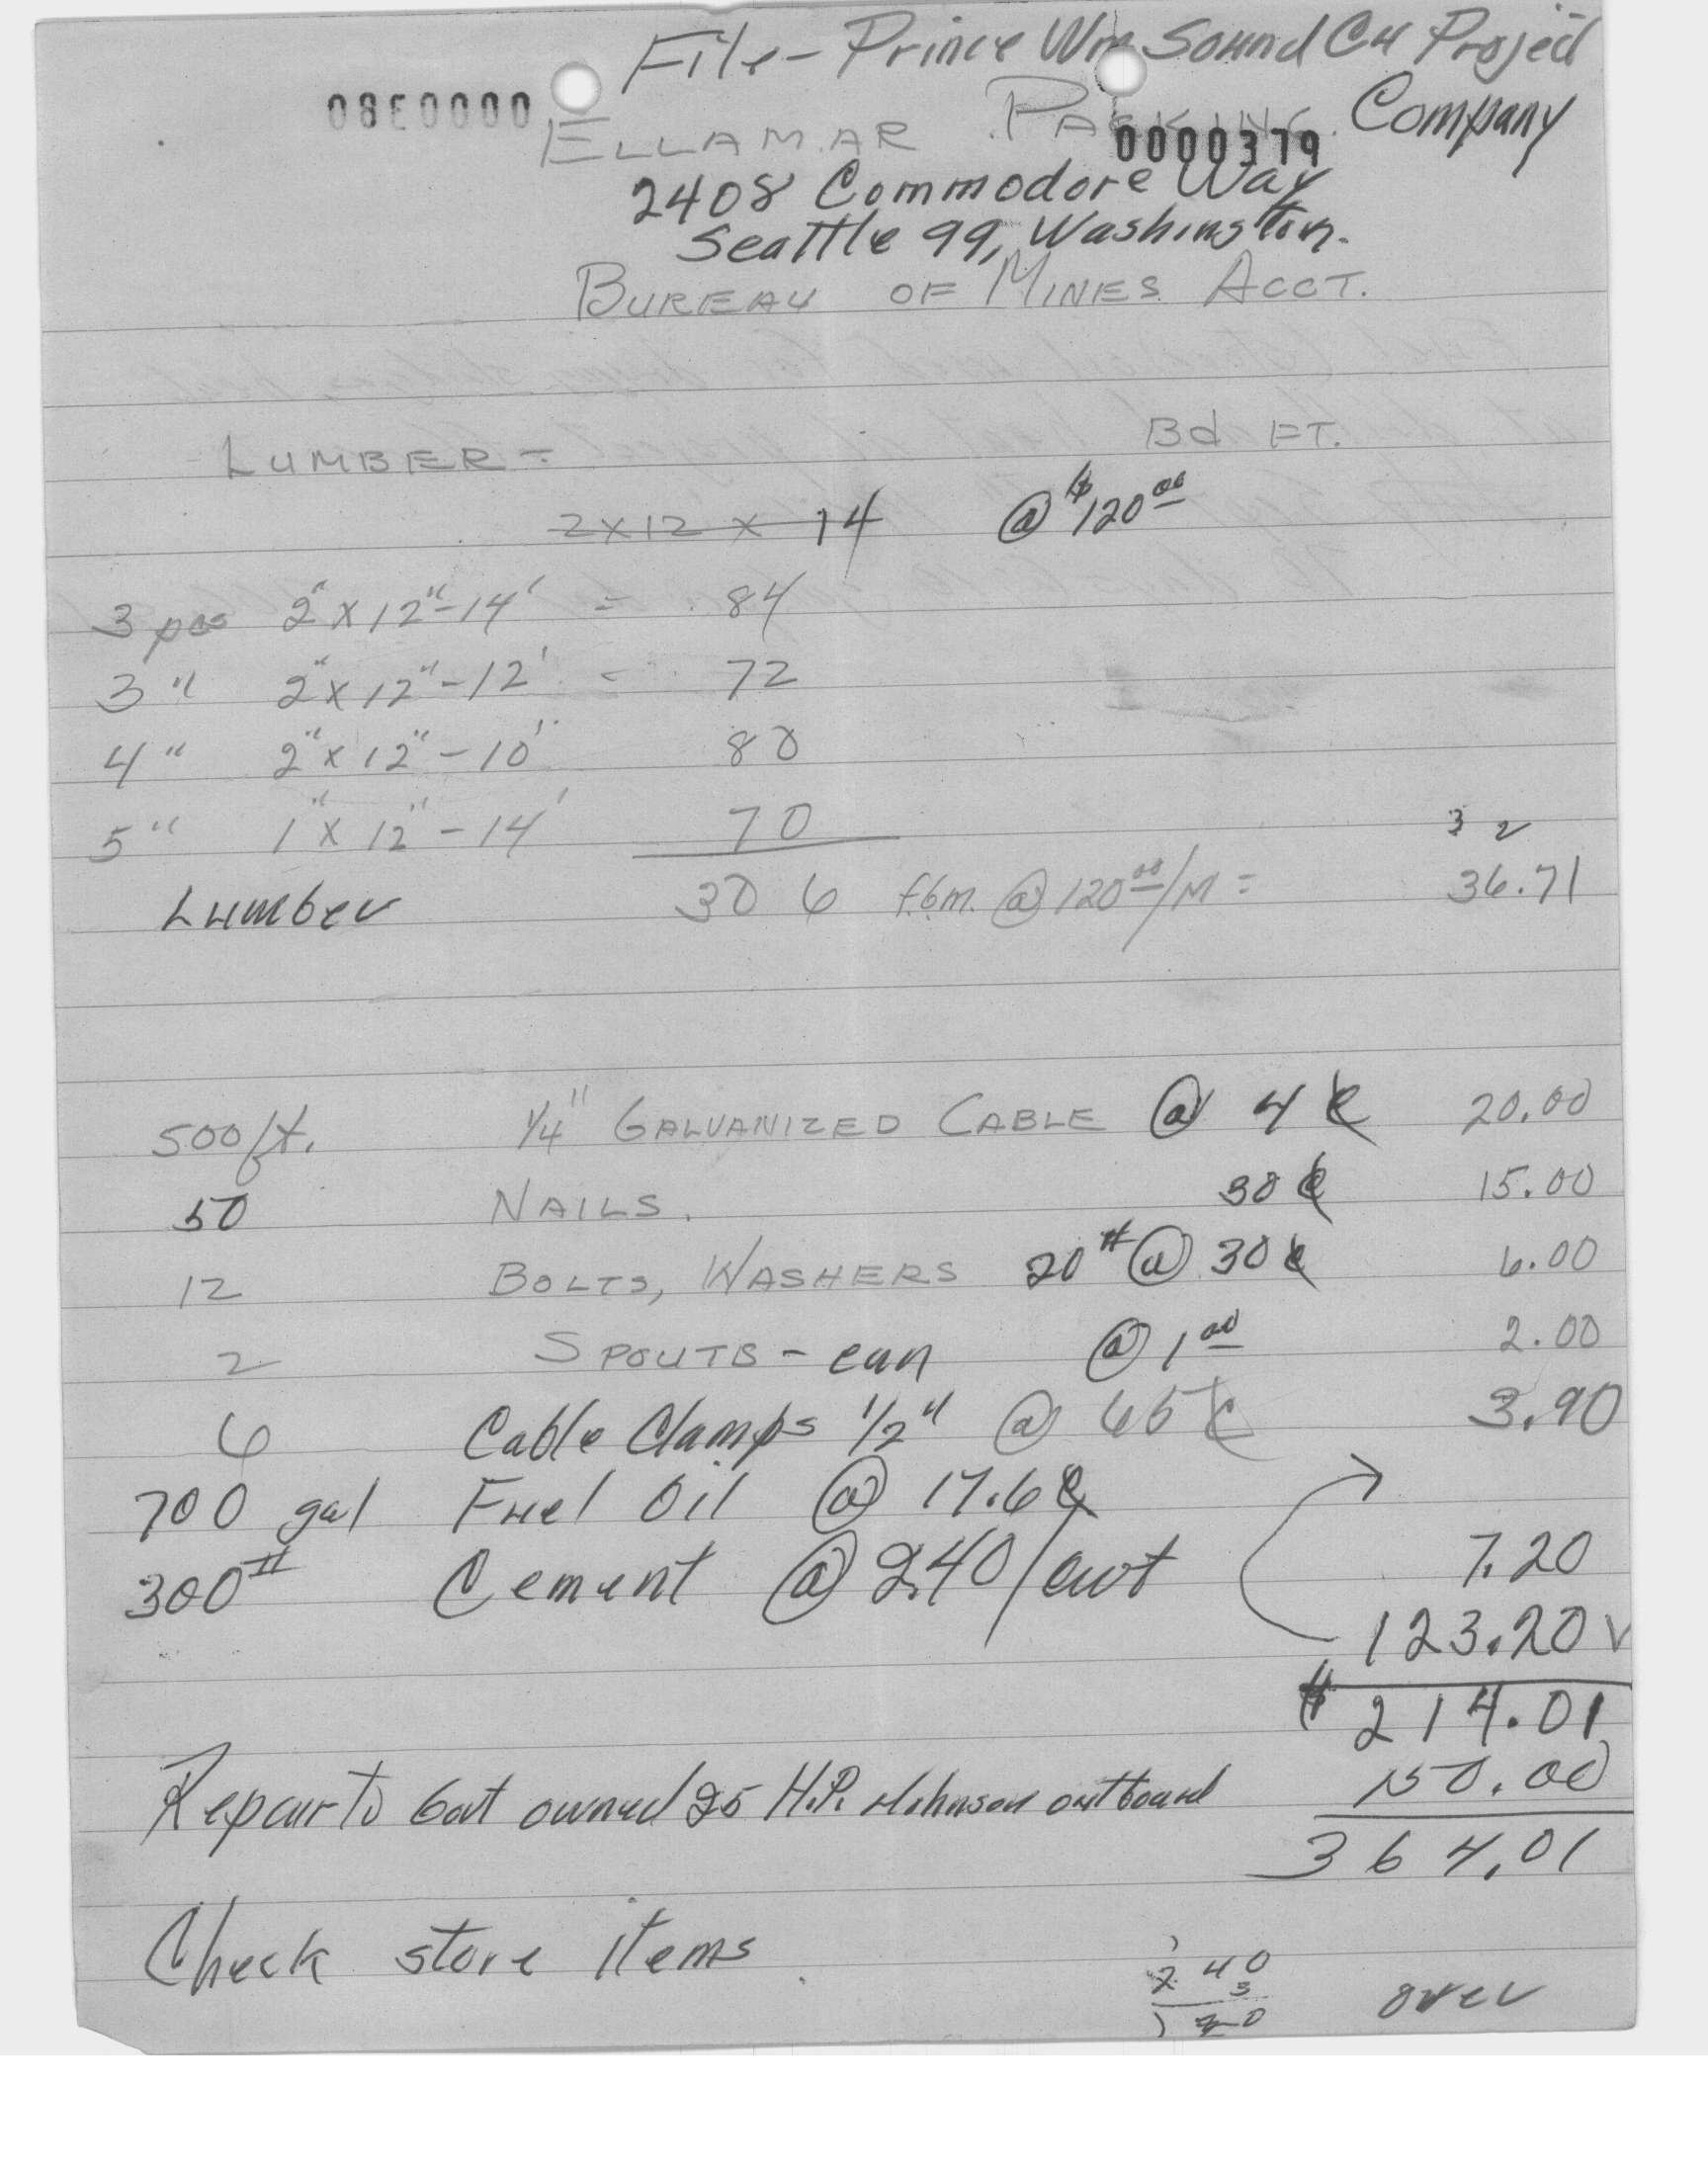 File - Prince Wm Sound Cu Project
0000380
ELLAMAR PACKING Company
0000379
2408 Commodore Way
Seattle 99, Washington.
BUREAU OF MINES ACCT.
LUMBER - Bd FT.
2x12 x 14 @ $120.00
3 pcs 2" x 12" - 14' = 84
3 " 2" x 12" - 12' = 72
4 " 2" x 12" - 10' 80
5 " 1" x 12" - 14' 70
3 2
Lumber 306 fbm. @ 120.00/M = 36.71
500 ft. 1/4" GALVANIZED CABLE @ 4¢ 20.00
50 NAILS. 30¢ 15.00
12 BOLTS, WASHERS 20# @ 30¢ 6.00
2 SPOUTS - can @ 1.00 2.00
6 Cable Clamps 1/2" @ 65¢ 3.90
700 gal Fuel Oil @ 17.6¢
300# Cement @ 2.40/cwt 7.20
123.20 ✓
$ 214.01
Repair to boat owned 25 H.P. Johnson outboard 150.00
364.01
Check store items.
240
3
720
over